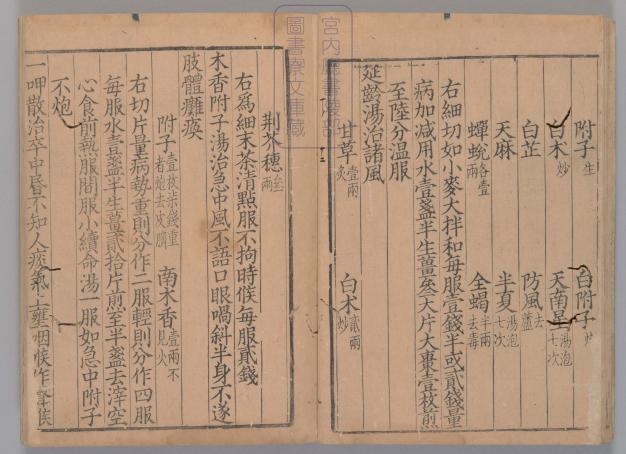 附子生 白附子
白术炒 天南星湯泡七次
白芷 防風去蘆
天麻 半夏湯泡七次
蟬蛻各壹兩 全蝎半兩去毒
右細切如小麥大拌和每服壹錢半或貳錢量
病加減用水壹盞半生薑叁大片大棗壹枚煎
至陸分温服
延齡湯治諸風
甘草壹兩炙 白术貳兩炒
宮内廳書陵部
圖書寮文庫藏
荆芥穗叁兩
右爲細末茶清點服不拘時候每服貳錢
木香附子湯治急中風不語口眼喎斜半身不遂
肢體癱瘓
附子壹枚柒錢重者炮去皮臍 南木香壹兩不見火
右切片量病勢重則分作二服輕則分作四服
每服水壹盞半生薑貳拾片煎至半盞去滓空
心食前熱服間服小續命湯一服如急中附子
不炮
一呷散治卒中昏不知人痰氣上壅咽喉作聲